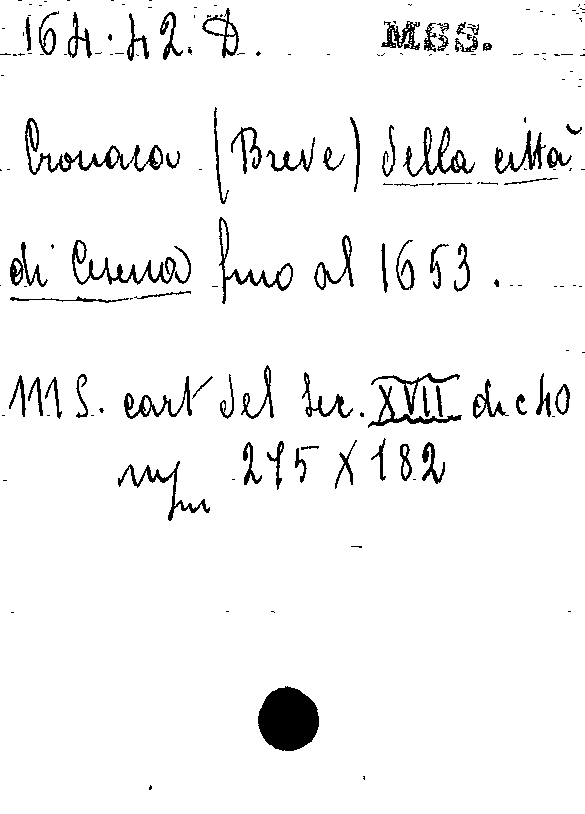 164.42.D. MSS.
Cronaca (Breve) della città
di Cesena fino al 1653.
MS. cart del sec. XVII di c 40
m/m 275 X 182